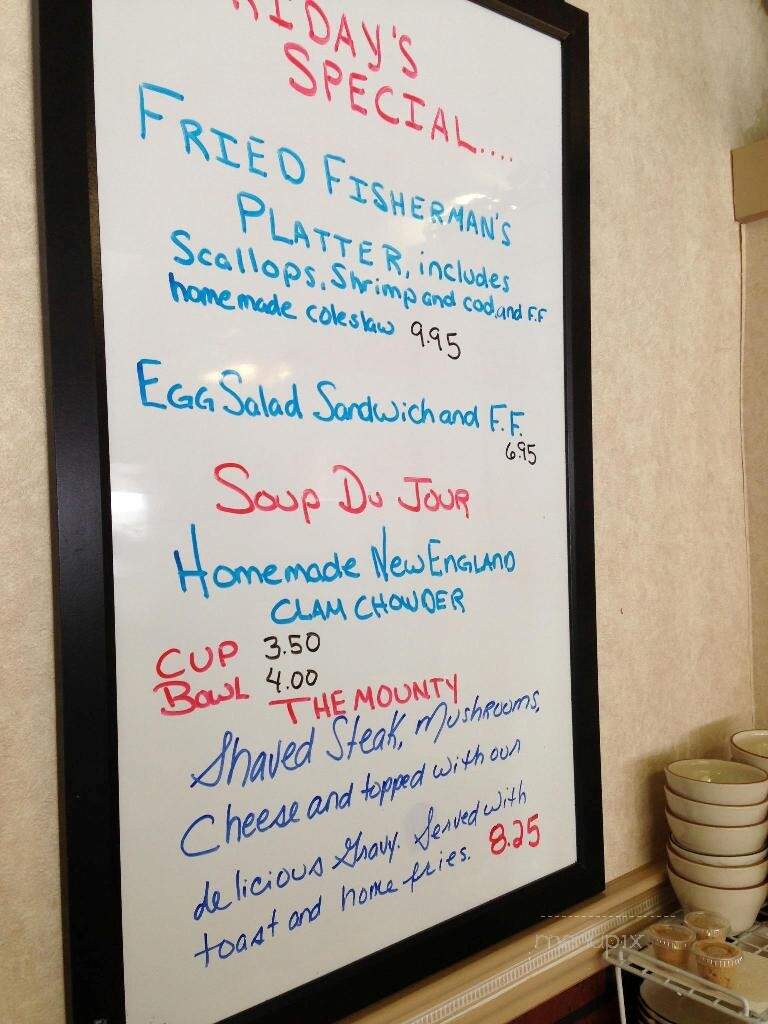 RIDAY'S
SPECIAL....
FRIED FISHERMAN'S
PLATTER, includes
Scallops, Shrimp and cod, and F.F
homemade coleslaw 9.95
EGG Salad Sandwich and F.F.
6.95
Soup Du Jour
Homemade New ENGLAND
CLAM CHOWDER
CUP 3.50
BOWL 4.00
THE MOUNTY
Shaved Steak, Mushrooms,
Cheese and topped with our
delicious Gravy. Served with
toast and home fries. 8.25